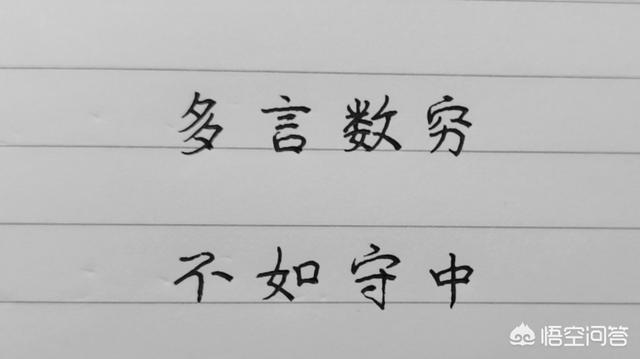 多言数穷
不如守中
悟空问答